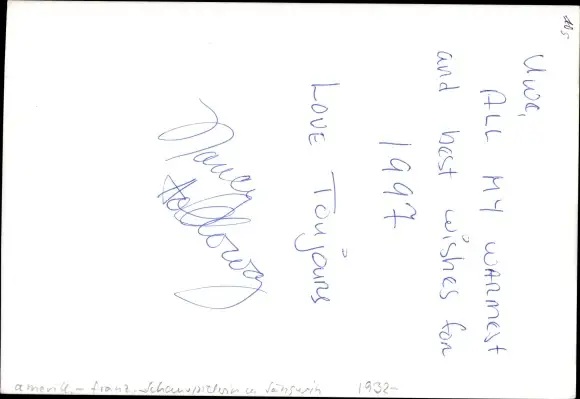 Uwe,
ALL MY WARMEST
and best wishes for
1997
LOVE Toujours
Nancy
Holloway
amerik.-franz. Schauspielerin u. Sängerin 1932-